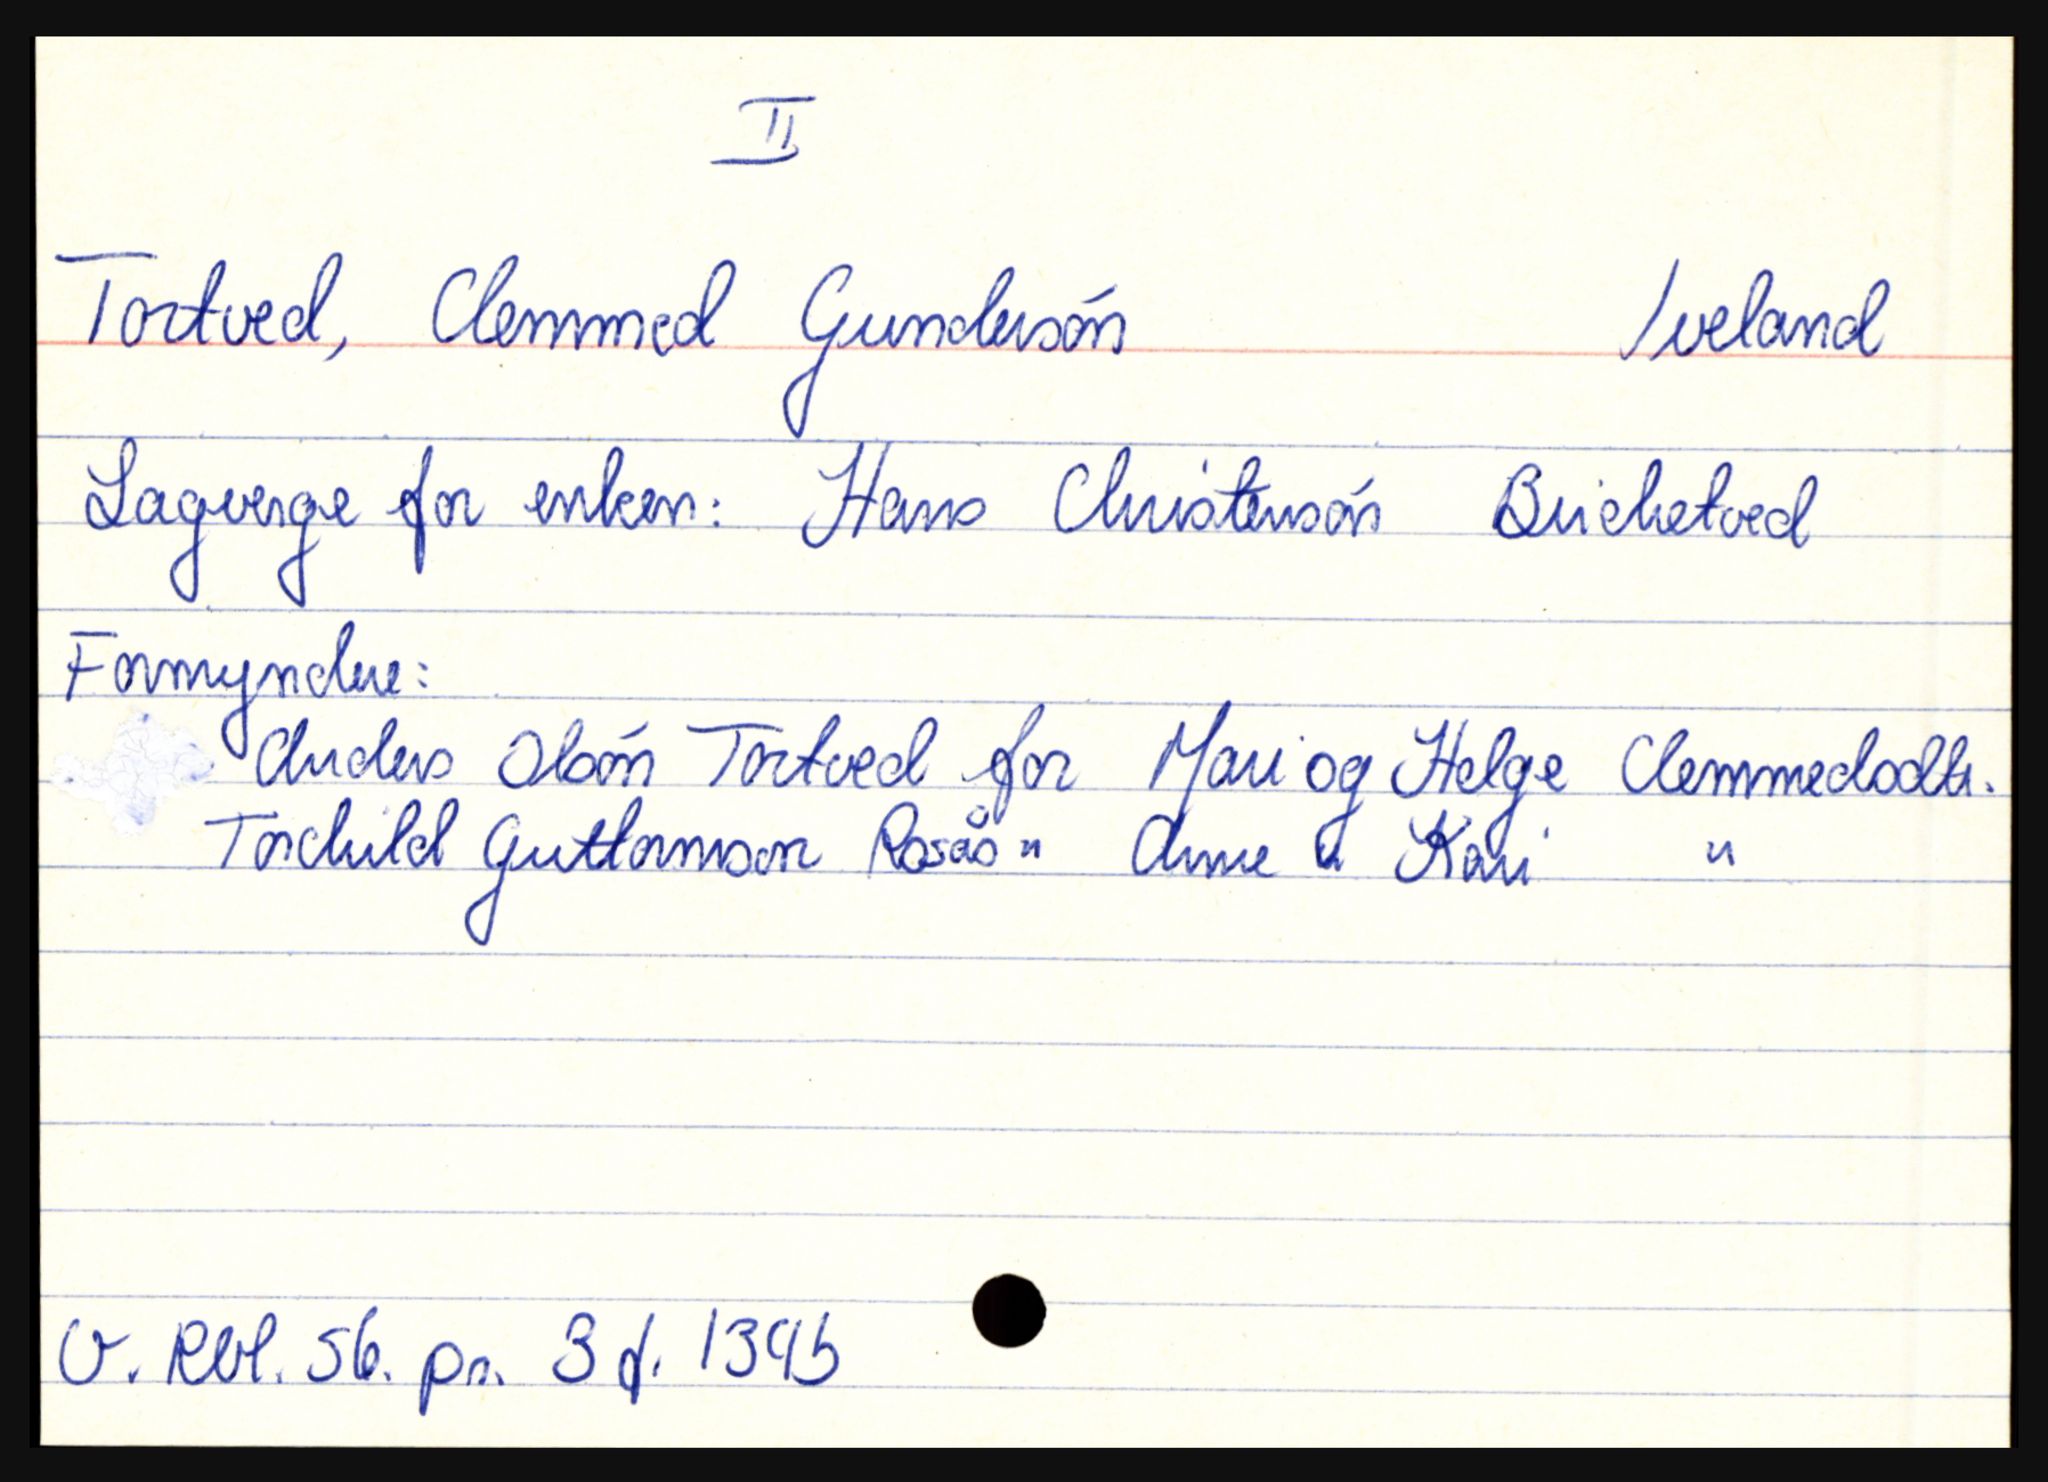 II
Tortved, Clemmed Gundersøn Iveland
Lagverge for enken: Hans Christensøn Birchetved
Formyndere:
Anders Olsøn Tortved for Mari og Helge Clemmedsdtr.
Torchild Guttormson Rosås " Anne " Kari "
V. Rbl. 56. pr. 3 f. 139b